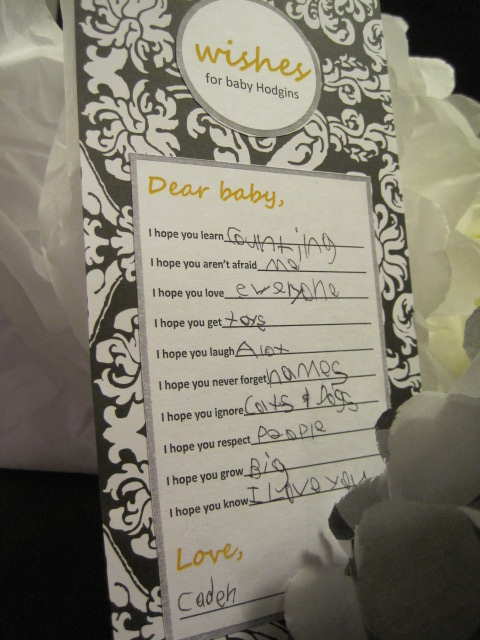 wishes
for baby Hodgins
Dear baby,
I hope you learn counting
I hope you aren't afraid me
I hope you love everyone
I hope you get toys
I hope you laugh Alot
I hope you never forget names
I hope you ignore Cats & Dogs
I hope you respect People
I hope you grow Big
I hope you know I love you
Love,
Caden